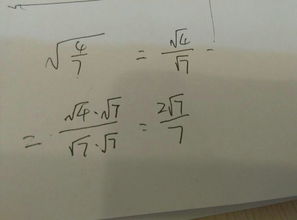 √(4/7) = √4/√7 =
= √4·√7/√7·√7 = 2√7/7